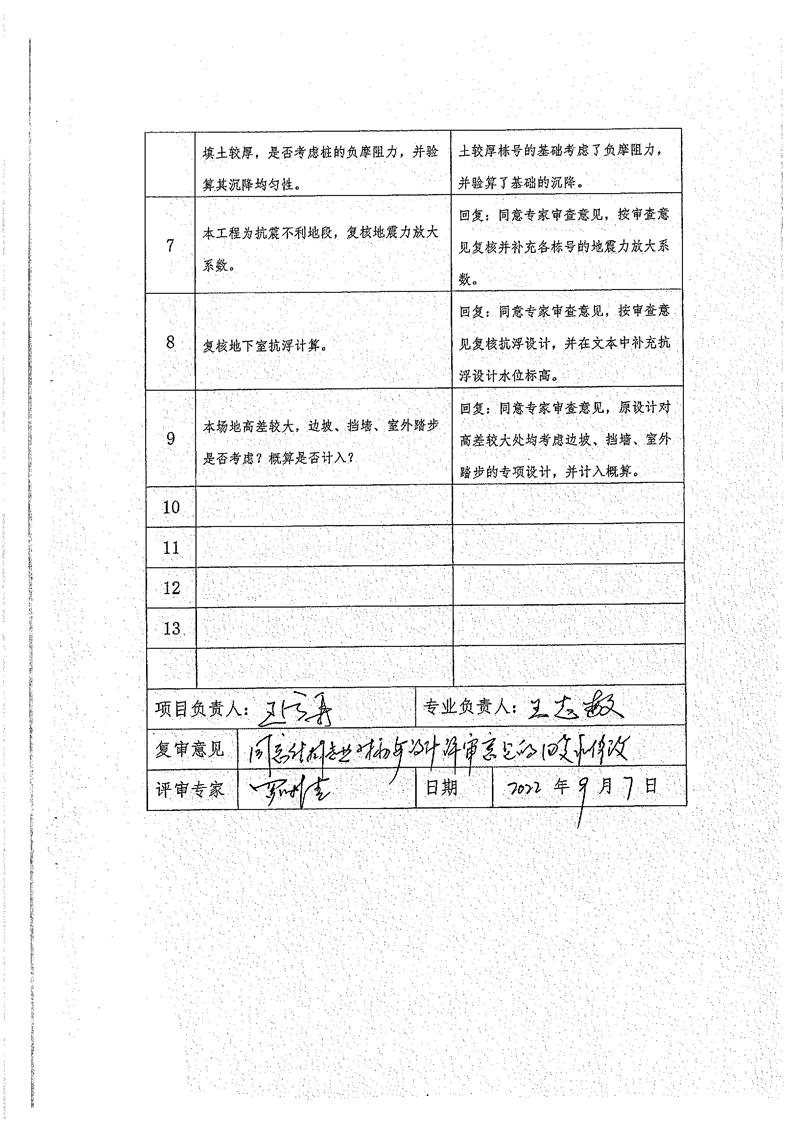 填土较厚，是否考虑桩的负摩阻力，并验
算其沉降均匀性。
土较厚栋号的基础考虑了负摩阻力，
并验算了基础的沉降。
7
本工程为抗震不利地段，复核地震力放大
系数。
回复：同意专家审查意见，按审查意
见复核并补充各栋号的地震力放大系
数。
8
复核地下室抗浮计算。
回复：同意专家审查意见，按审查意
见复核抗浮设计，并在文本中补充抗
浮设计水位标高。
9
本场地高差较大，边坡、挡墙、室外踏步
是否考虑？概算是否计入？
回复：同意专家审查意见，原设计对
高差较大处均考虑边坡、挡墙、室外
踏步的专项设计，并计入概算。
10
11
12
13
项目负责人：
专业负责人：王志敏
复审意见 同意结构专业对初步设计评审意见的回复和修改
评审专家
日期 2022 年 9 月 7 日